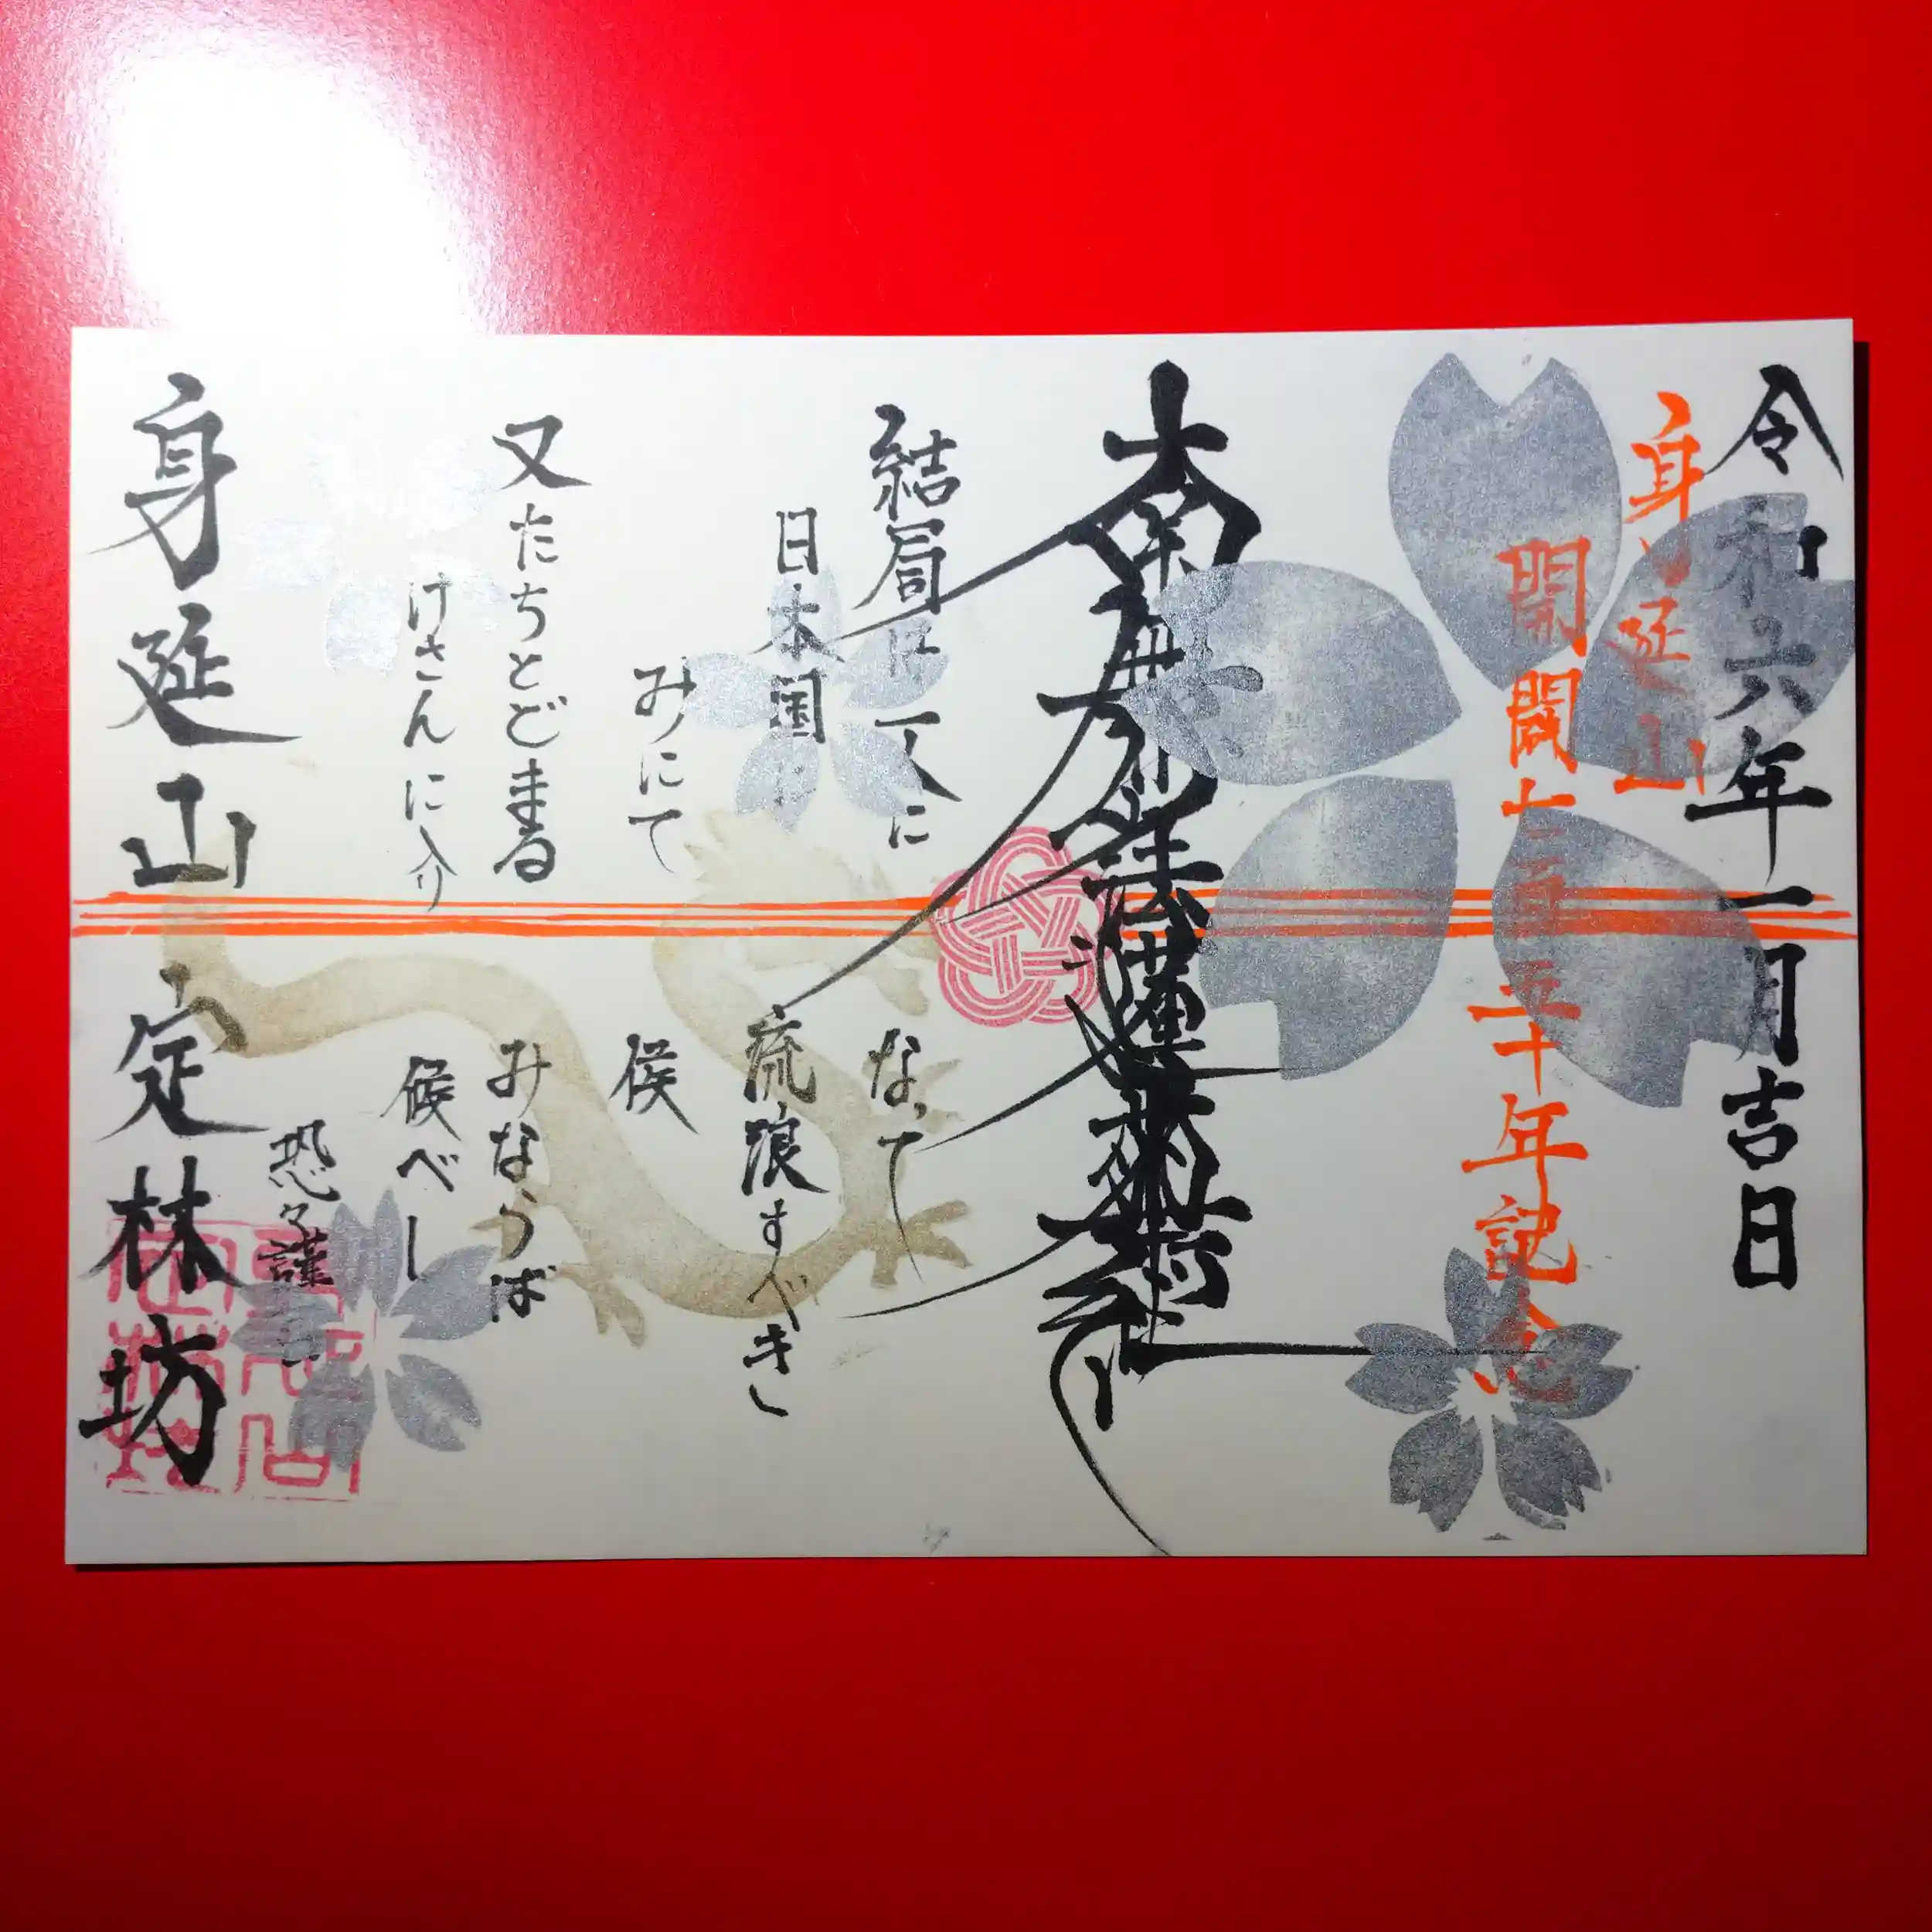 令和六年一月吉日
身延山
開闢七百五十年記念
南無妙法蓮華経
結局は一人に
なって
日本国に
流浪すべき
みにて
候
又たちとどまる
みならば
けさんに入
候べし
恐々謹言
身延山
定林坊